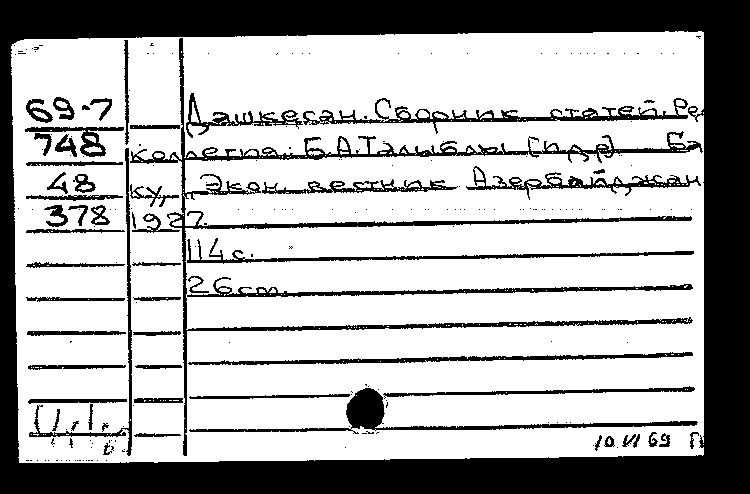 69-7 Дашкесан. Сборник статей. Ре
748 коллегия: Б.А.Талыблы [и др.] Ба
48 ку, "Экон. вестник Азербайджан
378 1927.
114 с.
26 cm.
10 VI 69 П